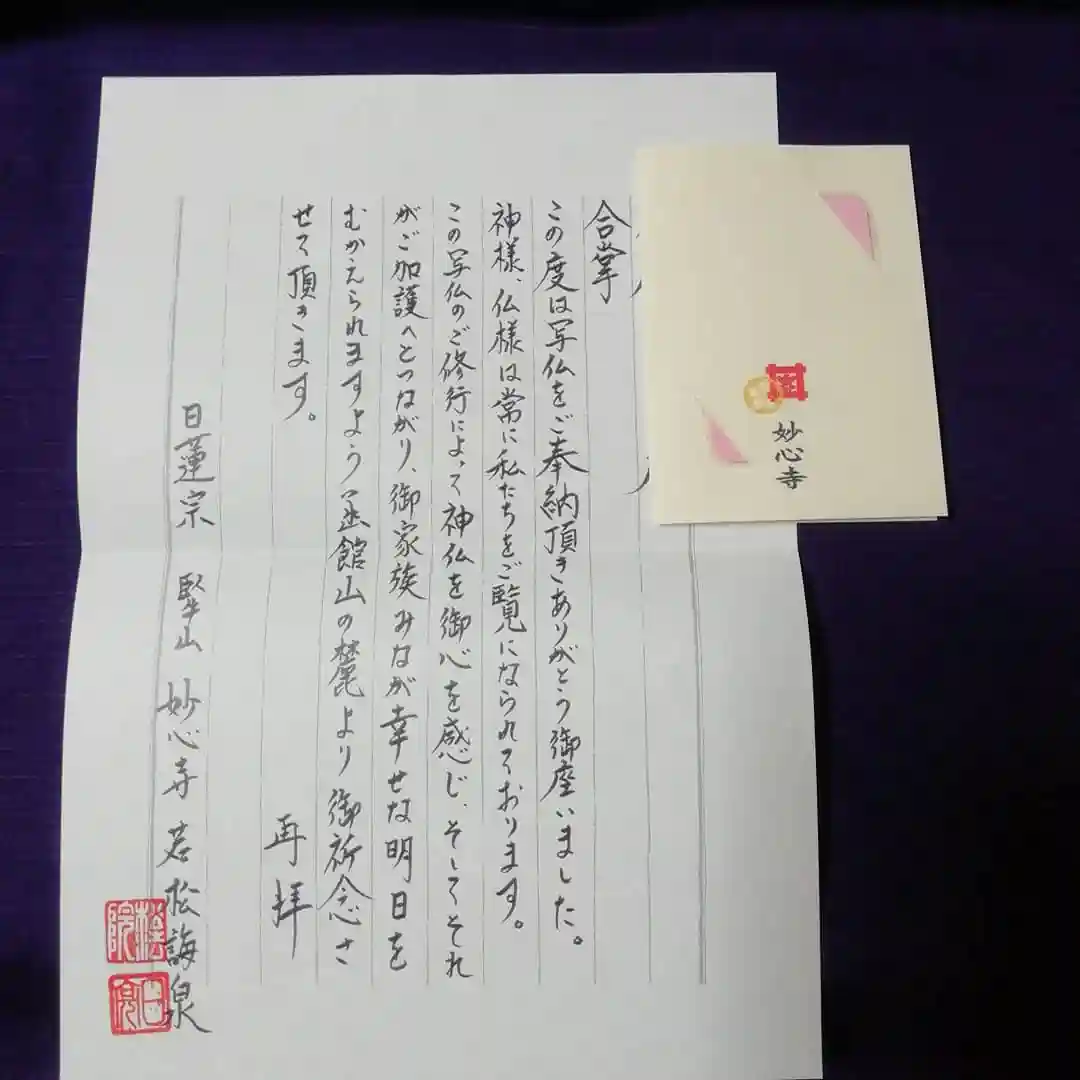 合掌
この度は写仏をご奉納頂きありがとう御座いました。
神様、仏様は常に私たちをご覧になられております。
この写仏のご修行によって神仏を御心を感じ、そしてそれ
がご加護へとつながり、御家族みなが幸せな明日を
むかえられますよう函館山の麓より御祈念さ
せて頂きます。
再拝
日蓮宗 堅山 妙心寺 若松誨泉
妙心寺